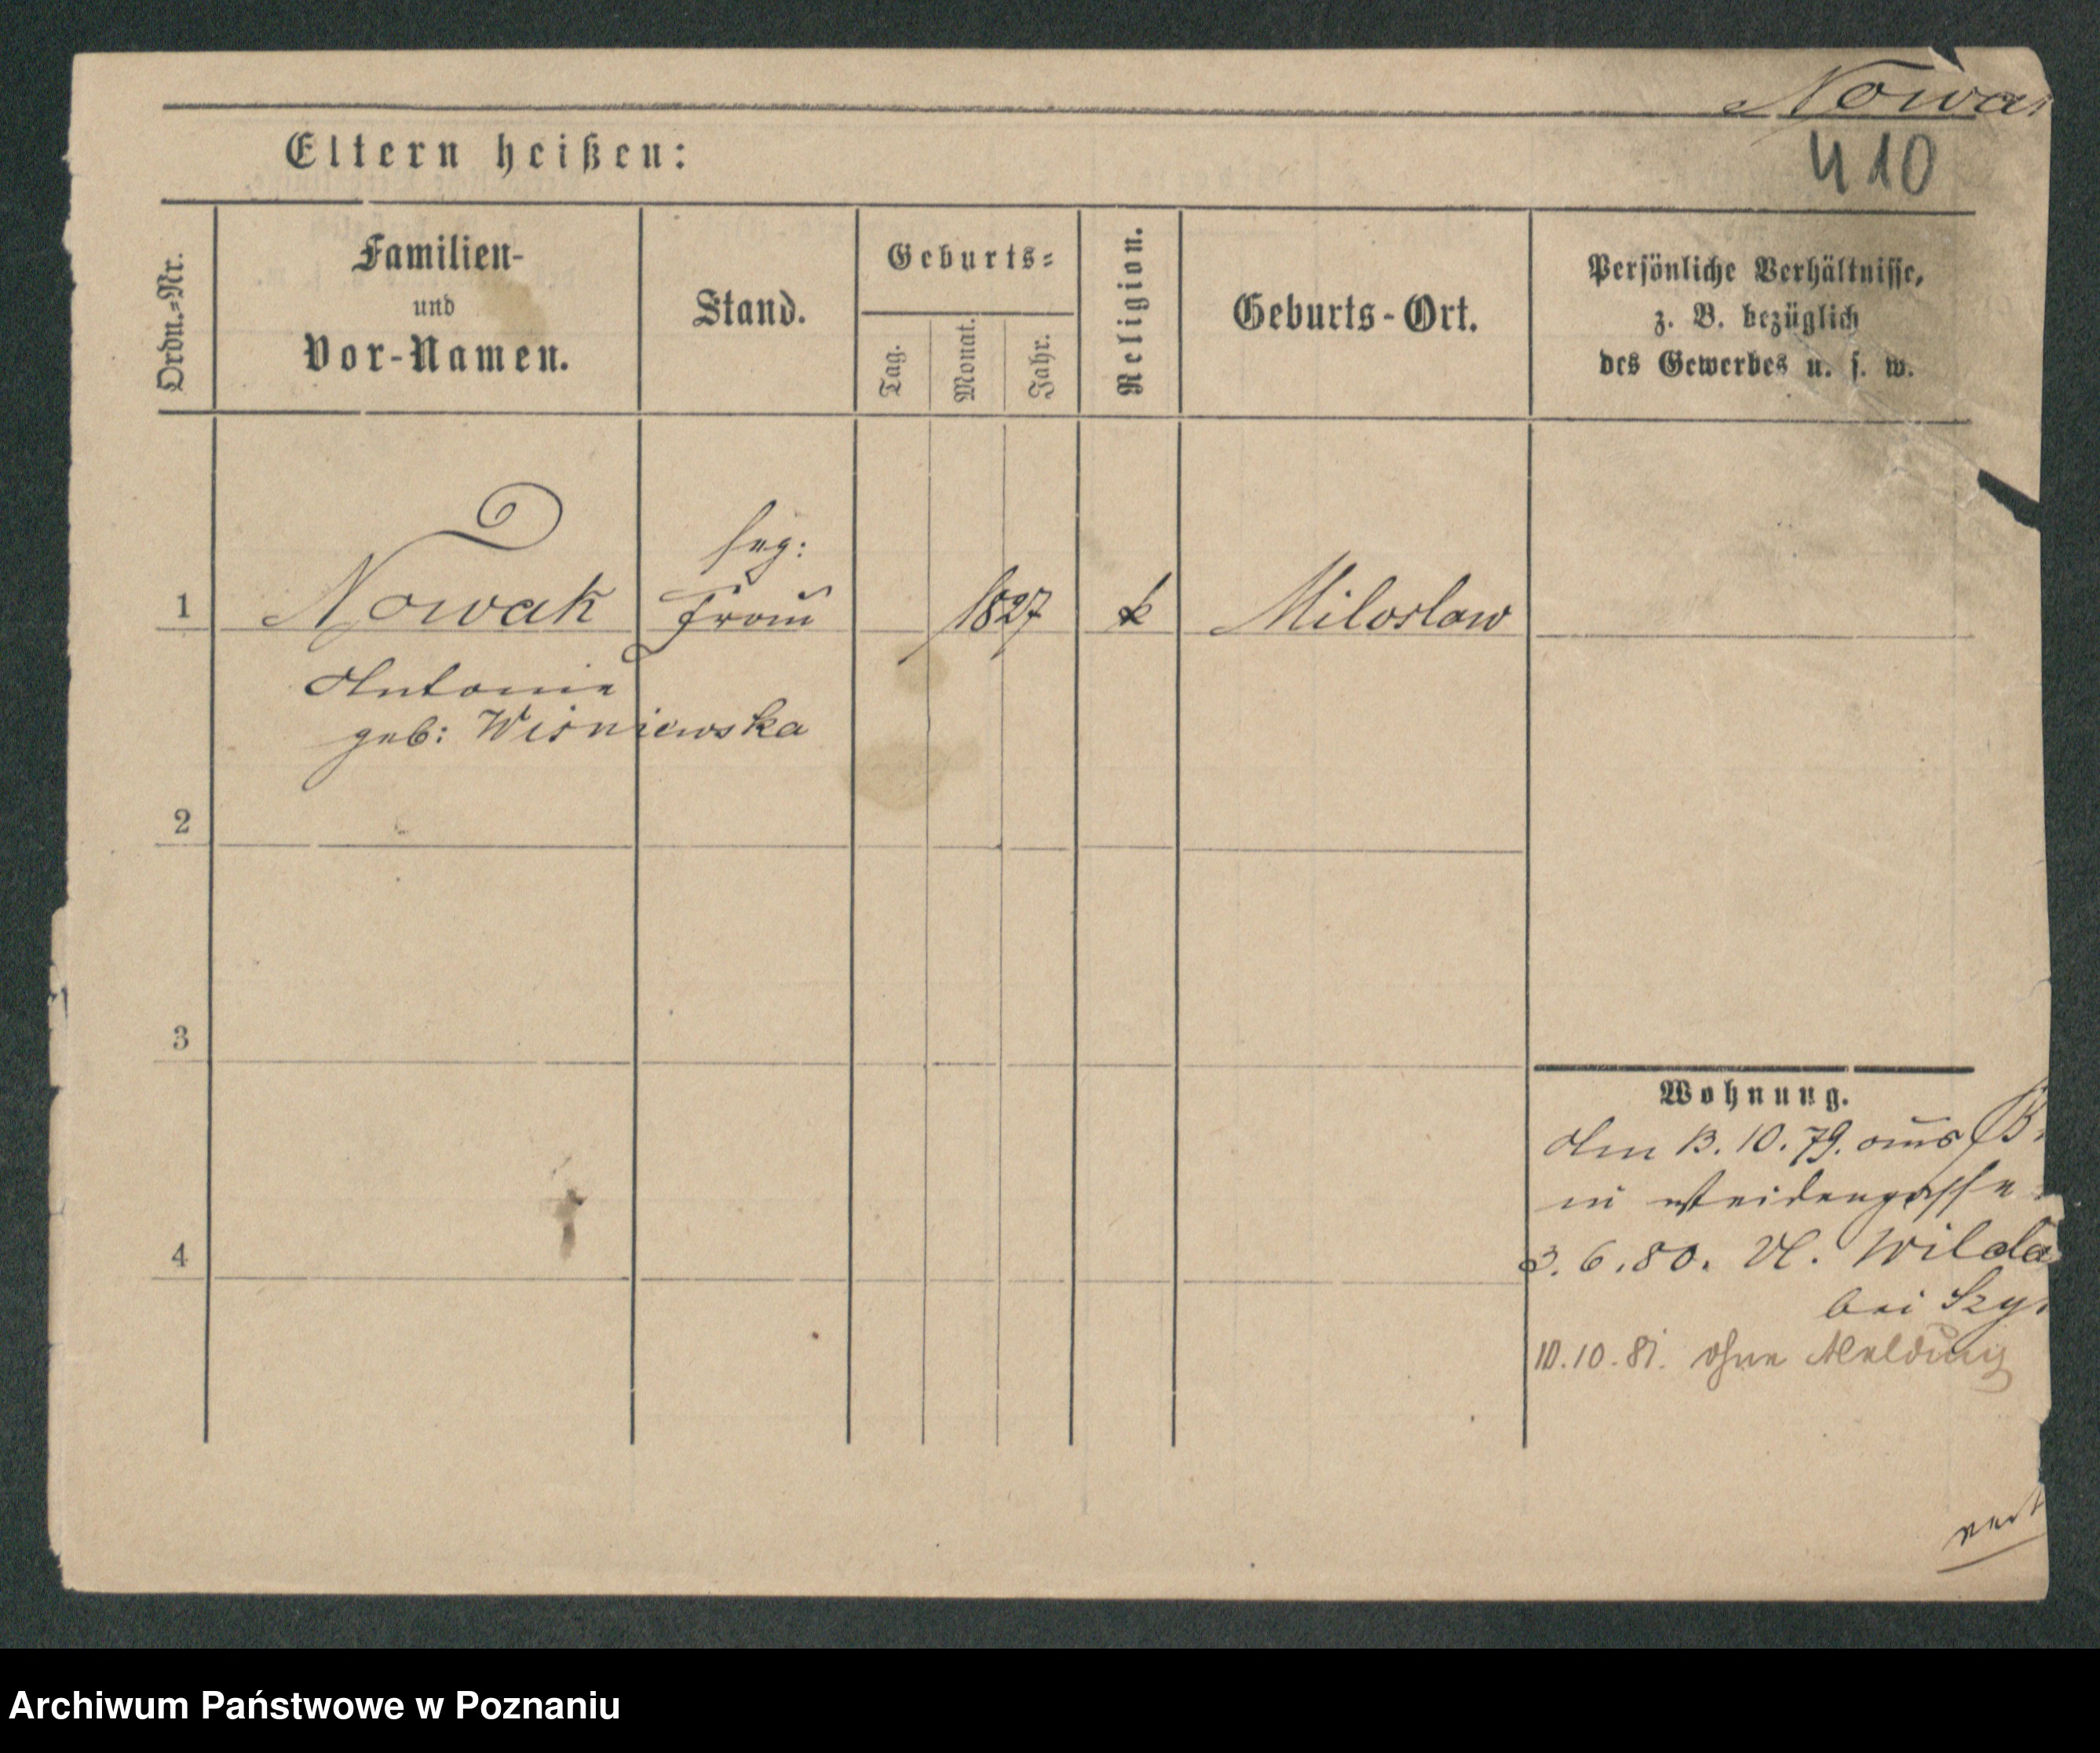 Nowa
410
Eltern heißen:
Ordn.-Nr.
Familien-
und
Vor-Namen.
Stand.
Geburts-
Tag.
Monat.
Jahr.
Religion.
Geburts-Ort.
Persönliche Verhältnisse,
z. B. bezüglich
des Gewerbes u. s. w.
1
Nowak
Frau
1827
k
Miloslaw
Antonie
geb: Wisniewska
2
3
4
Wohnung.
Am 13.10.79. aus B
in Weidengasse
3.6.80. Wilda
bei Szy
10.10.81. ohne Meldung
Archiwum Państwowe w Poznaniu